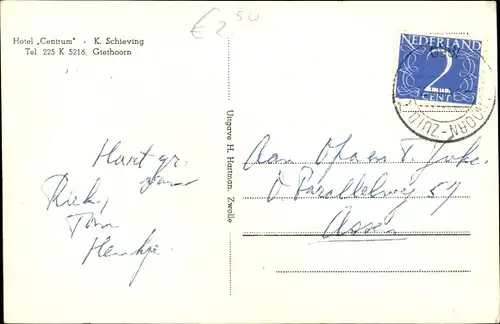 € 2 50
Hotel „Centrum" - K. Schieving
Tel. 225 K 5216, Giethoorn
NEDERLAND
2
CENT
HOORN-ZUID
Uitgave H. Hartman, Zwolle
Hart. gr.
van
Riek,
Ton
Henkje.
Aan Opa en T. Joke.
Parallelweg 57
Assen